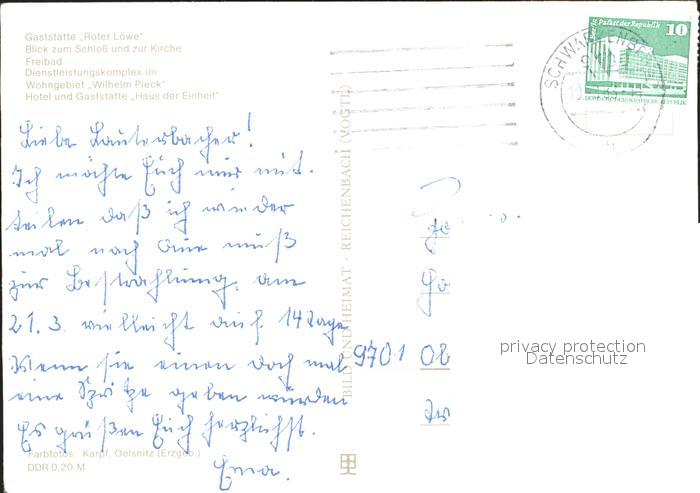 Gaststätte „Roter Löwe"
Blick zum Schloß und zur Kirche
Freibad
Dienstleistungskomplex im
Wohngebiet „Wilhelm Pieck"
Hotel und Gaststätte „Haus der Einheit"
Liebe Lauterbacher!
Ich möchte Euch nur mit-
teilen daß ich wieder
mal nach Aue muß
zur Bestrahlung. am
21.3. vielleicht auf 14 Tage
Wenn sie einen doch mal
eine Spritze geben würden
Es grüßen Euch herzlichst.
Erna.
Farbfotos: Karpf, Oelsnitz (Erzgeb.)
DDR 0,20 M
BILD UND HEIMAT · REICHENBACH (VOGTL)
SCHWARZENBE
Palast der Republik
10
DEUTSCHE DEMOKRATISCHE REPUBLIK
9701
privacy protection
Datenschutz